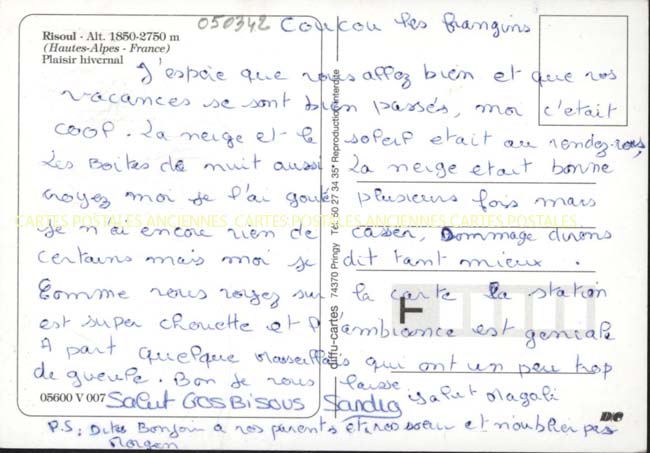 050342
Risoul - Alt. 1850-2750 m
(Hautes-Alpes - France)
Plaisir hivernal
Coucou les frangins
J'espère que vous allez bien et que vos
vacances se sont bien passés, moi c'était
cool. La neige et le soleil était au rendez-vous,
Les Boites de nuit aussi. La neige était bonne
croyez moi je l'ai goutée plusieurs fois mais
je n'ai encore rien de casser, Dommage dirons
certains mais moi je dit tant mieux.
Comme vous voyez sur la carte la station
est super chouette et l'ambiance est geniale
A part quelque Marseillais qui ont un peu trop
de gueule. Bon je vous laisse
Salut GROSBISOUS Sandra
Salut Magali
P.S: Dites Bonjour a vos parents et vos soeur et n'oublier pas
Morgan
05600 V 007
diffu-cartes 74370 Pringy Tél. 50 27 34 35* Reproduction interdite
F
CARTES POSTALES ANCIENNES CARTES POSTALES ANCIENNES CARTES POSTALES